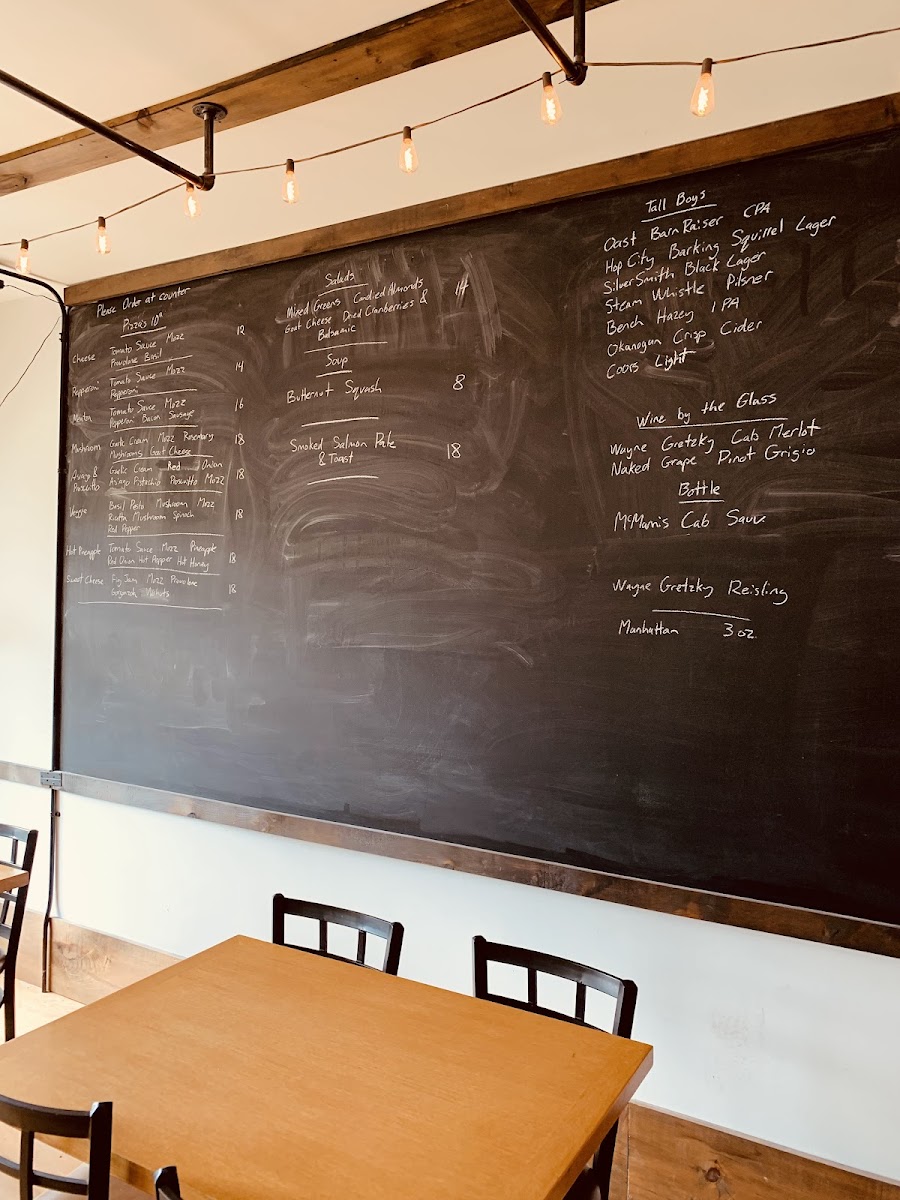 Please Order at counter
Pizza's 10"
Cheese Tomato Sauce Mozz 12
Provolone Basil
Pepperoni Tomato Sauce Mozz 14
Pepperoni
Tomato Sauce Mozz 16
Pepperoni Bacon Sausage
Mushroom Garlic Cream Mozz Rosemary 18
Mushrooms Goat Cheese
Asiago & Garlic Cream Red Onion
Prosciutto Asiago Pistachio Prosciutto Mozz 18
Veggie Basil Pesto Mushroom Mozz
Ricotta Mushroom Spinach 18
Red Pepper
Hot Pineapple Tomato Sauce Mozz Pineapple
Red Onion Hot Pepper Hot Honey 18
Sweet Cheese Fig Jam Mozz Provolone
Walnuts 18
Salads
Mixed Greens Candied Almonds 14
Goat Cheese Dried Cranberries &
Balsamic
Soup
Butternut Squash 8
Smoked Salmon Pate
& Toast 18
Tall Boys
Oast Barn Raiser CPA
Hop City Barking Squirrel Lager
SilverSmith Black Lager
Steam Whistle Pilsner
Bench Hazey IPA
Okanagan Crisp Cider
Coors Light
Wine by the Glass
Wayne Gretzky Cab Merlot
Naked Grape Pinot Grigio
Bottle
McManis Cab Sauv
Wayne Gretzky Reisling
Manhattan 3 oz.